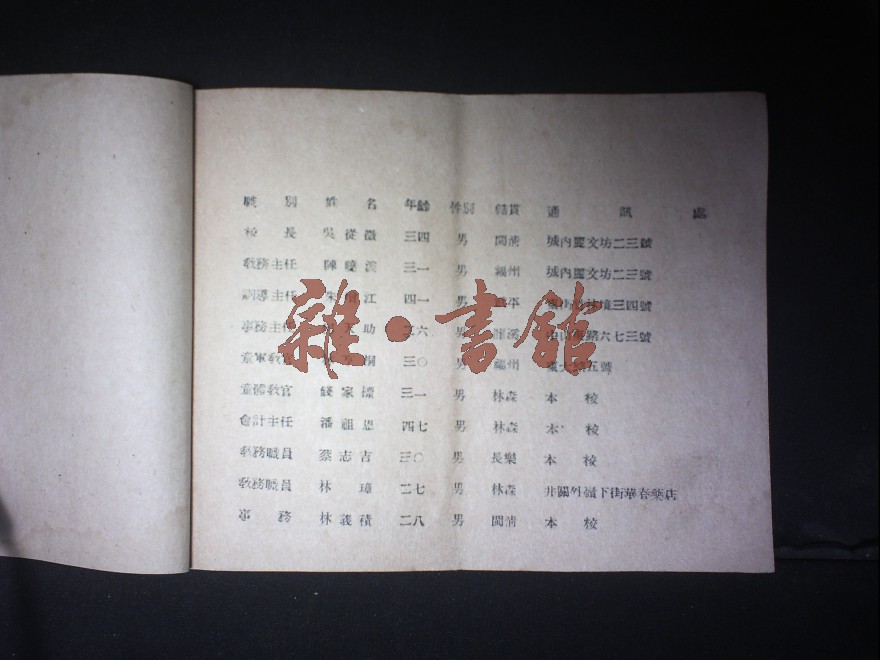 職別 姓名 年齡 性別 籍貫 通訊處
校長 吳從徵 三四 男 閩清 城內麗文坊二三號
教務主任 陳曉 三一 男 福州 城內麗文坊二三號
訓導主任 朱 江 四一 男 平 街 境三四號
事務主任 助 六 男 溪 路六七三號
童軍教官 三〇 男 福州 五號
童體教官 錢家標 三一 男 林森 本校
會計主任 潘祖恩 四七 男 林森 本校
教務職員 蔡志吉 三〇 男 長樂 本校
教務職員 林璋 二七 男 林森 井關外嶺下街華春藥店
事務 林義積 二八 男 閩清 本校
雜·書館